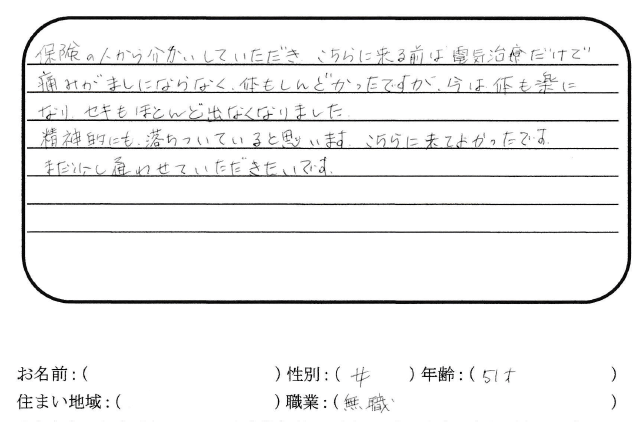 保険の人から紹介していただき こちらに来る前は電気治療だけで
痛みがましにならなく、体もしんどかったですが、今は体も楽に
なり、セキもほとんど出なくなりました。
精神的にも、落ちついていると思います。こちらに来てよかったです。
まだ少し通わせていただきたいです。
お名前:( )性別:( 女 )年齢:( 51才 )
住まい地域:( )職業:( 無職 )